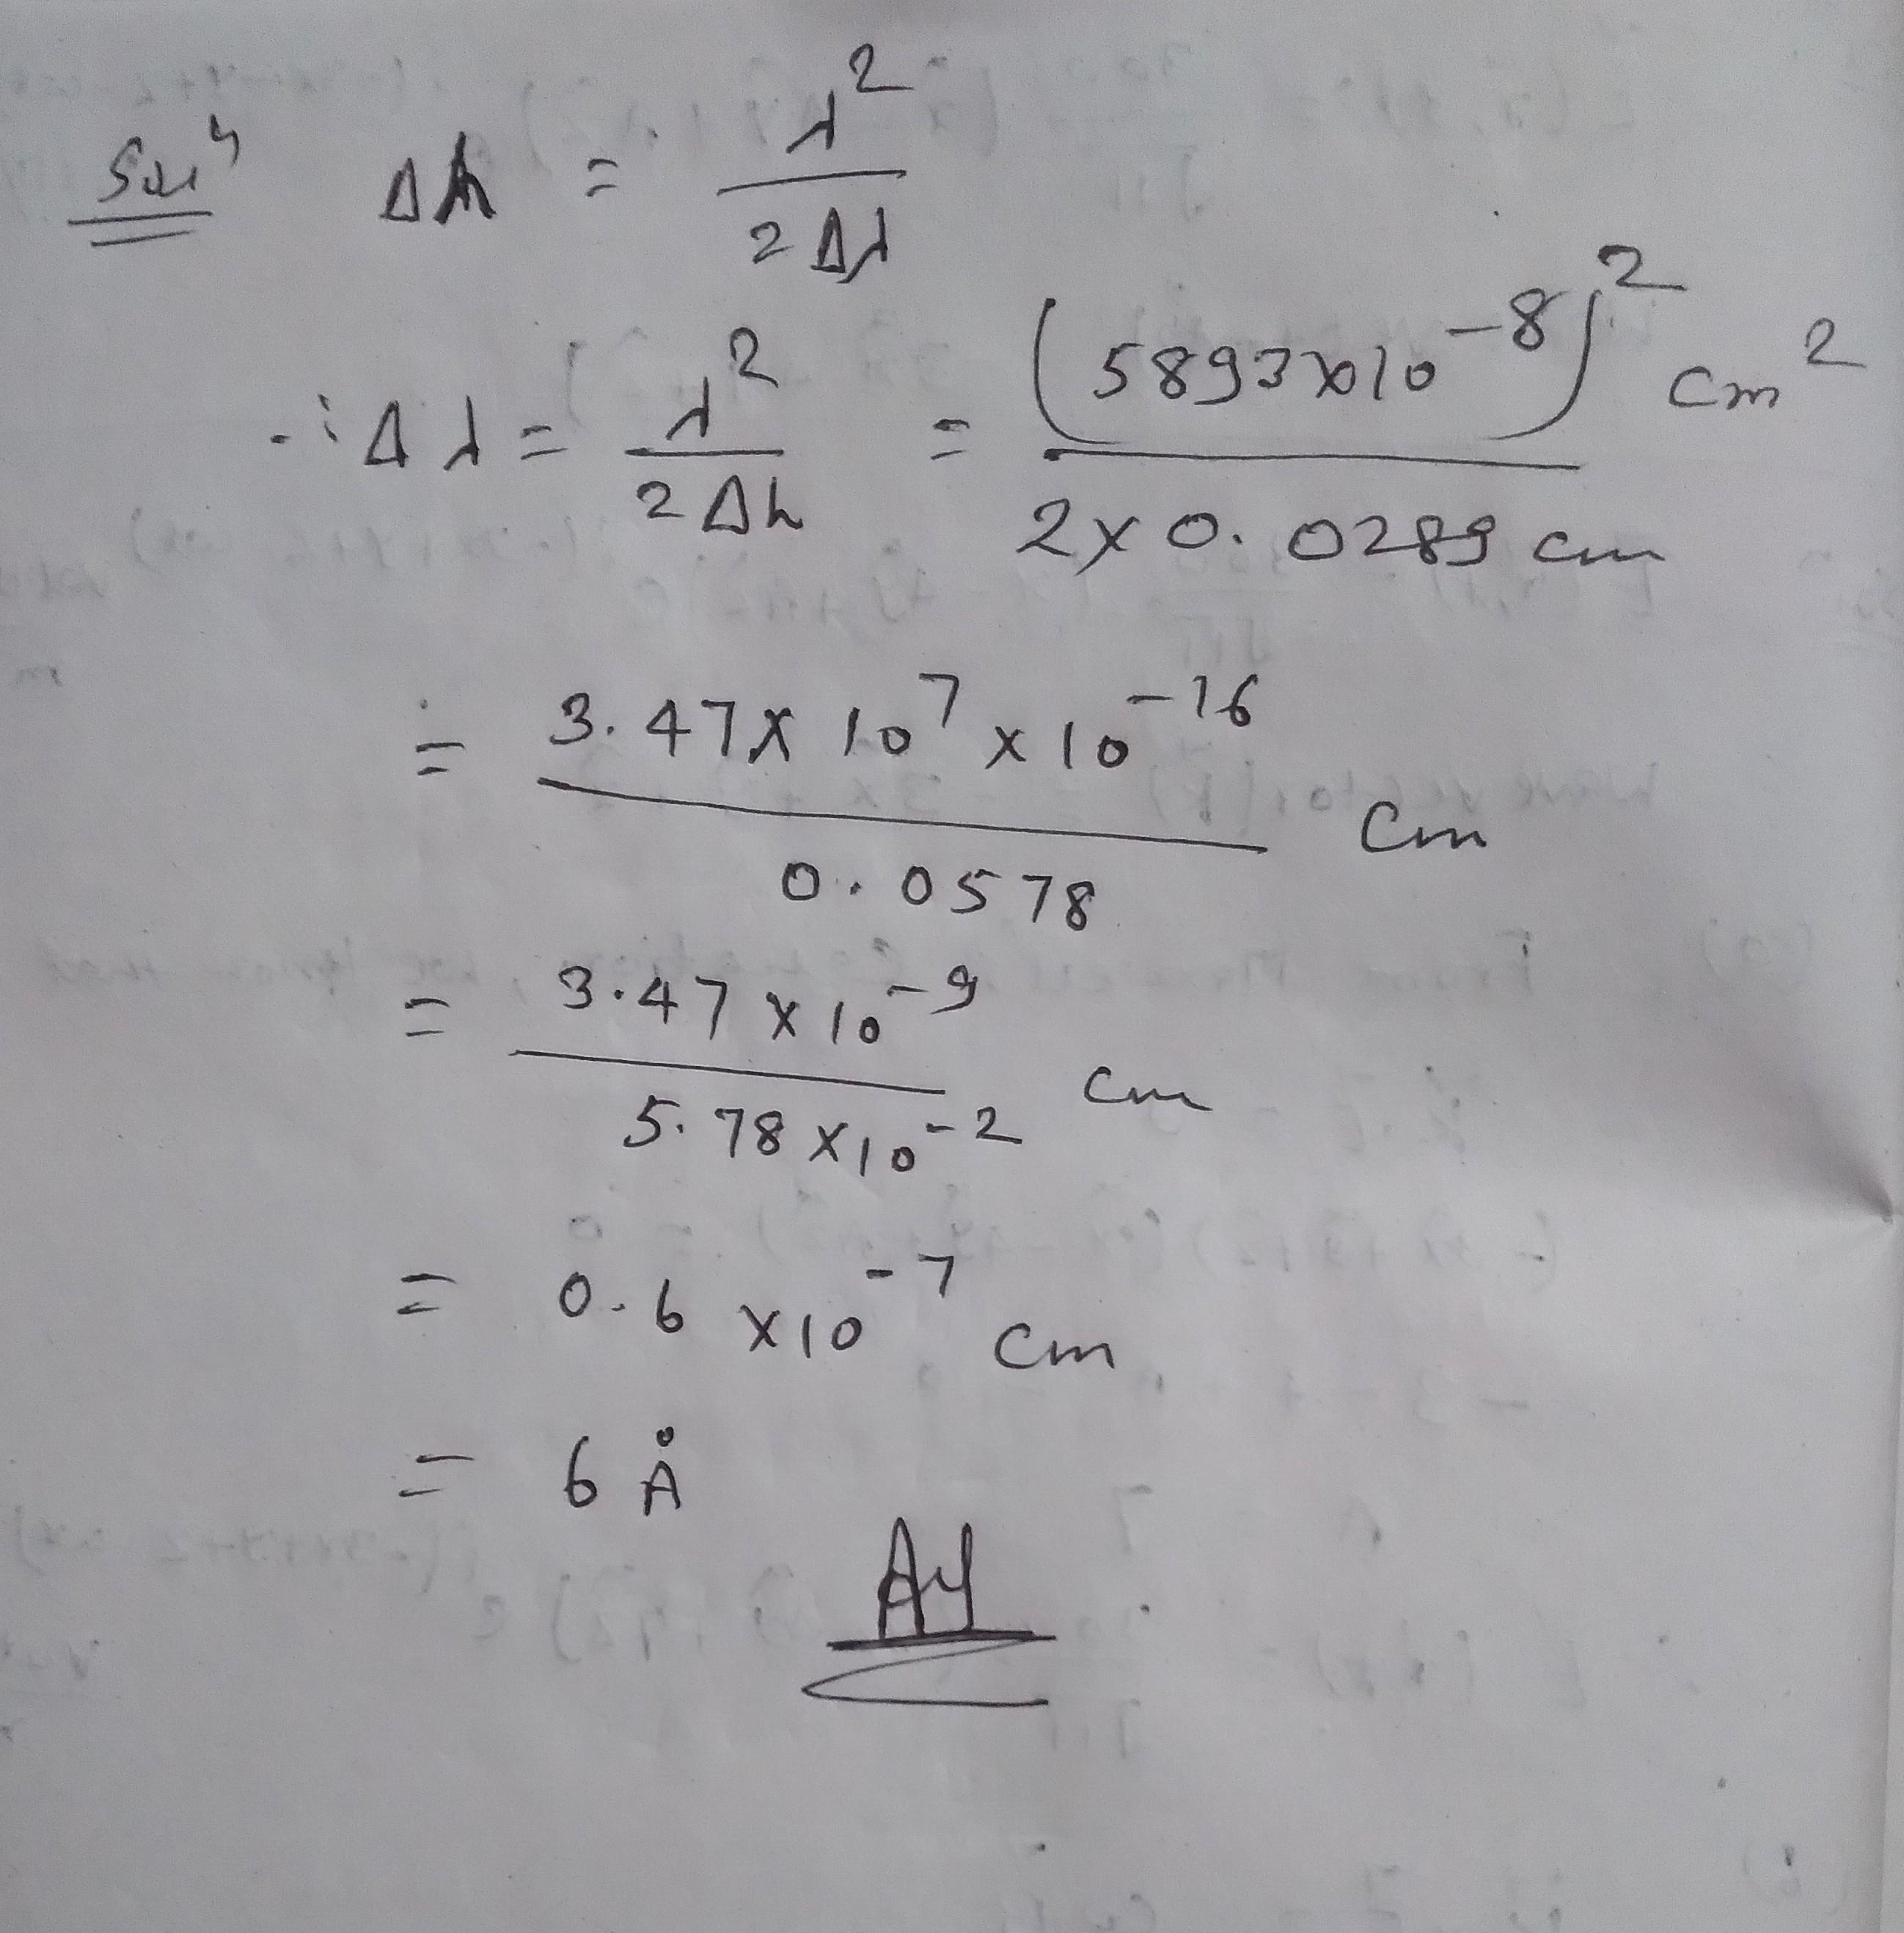 Solⁿ Δh = λ² / 2Δλ
∴ Δλ = λ² / 2Δh = (5893×10⁻⁸)² cm² / 2×0.0289 cm
= 3.47×10⁷×10⁻¹⁶ / 0.0578 cm
= 3.47×10⁻⁹ / 5.78×10⁻² cm
= 0.6×10⁻⁷ cm
= 6 Å